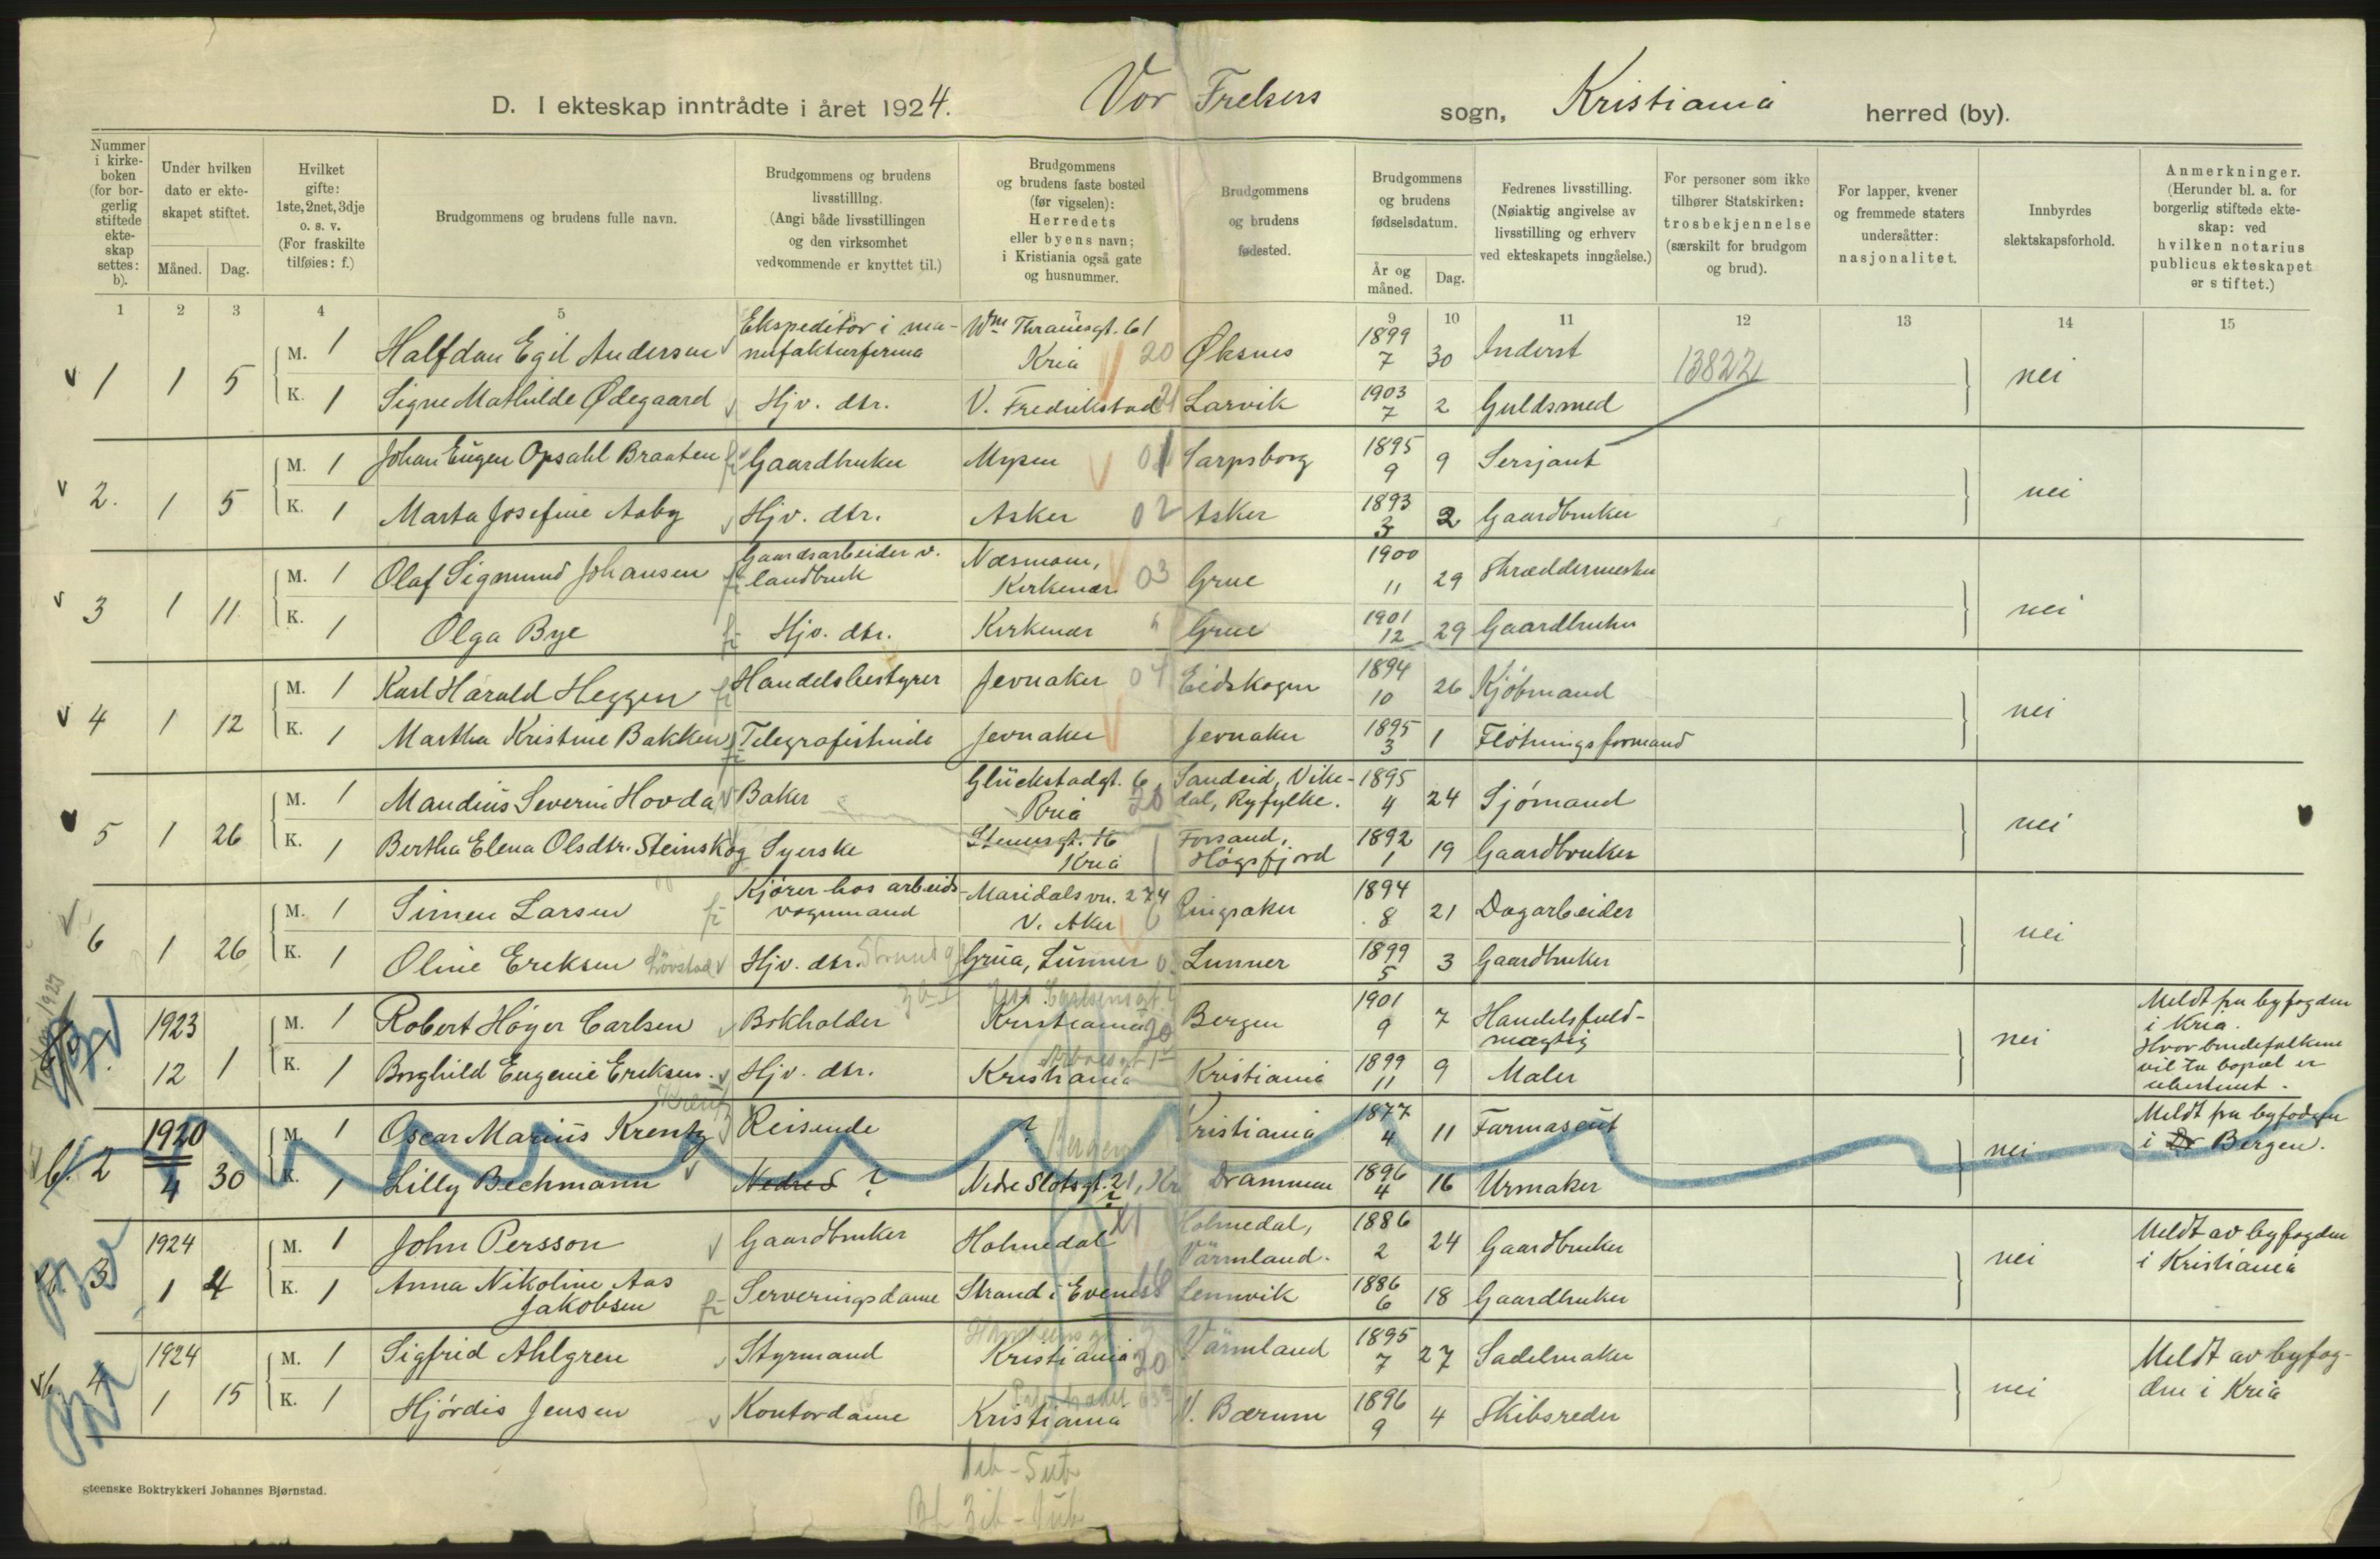 D. I ekteskap inntrådte i året 1924. Vor Frelsers sogn, Kristiania herred (by).
Nummer i kirkeboken (for borgerlig stiftede ekteskap settes: b).
Under hvilken dato er ekteskapet stiftet.
Måned. Dag.
Hvilket gifte: 1ste, 2net, 3dje o. s. v. (For fraskilte tilføies: f.)
Brudgommens og brudens fulle navn.
Brudgommens og brudens livsstilllng. (Angi både livsstillingen og den virksomhet vedkommende er knyttet til.)
Brudgommens og brudens faste bosted (før vigselen): Herredets eller byens navn; i Kristiania også gate og husnummer.
Brudgommens og brudens fødested.
Brudgommens og brudens fødselsdatum.
År og måned. Dag.
Fedrenes livsstilling. (Nøiaktig angivelse av livsstilling og erhverv ved ekteskapets inngåelse.)
For personer som ikke tilhører Statskirken: trosbekjennelse (særskilt for brudgom og brud).
For lapper, kvener og fremmede staters undersåtter: nasjonalitet.
Innbyrdes slektskapsforhold.
Anmerkninger. (Herunder bl. a. for borgerlig stiftede ekteskap: ved hvilken notarius publicus ekteskapet er stiftet.)
1 2 3 4 5 7 9 10 11 12 13 14 15
1 1 5 M. 1 Halfdan Egil Andersen Ekspeditør i manufakturfirma Wm Thranesgt. 61 Kria 20 Øksnes 1899 7 30 Inderst 13822 nei
K. 1 Signe Mathilde Ødegaard Hjv. dtr. V. Fredrikstad Larvik 1903 7 2 Guldsmed
2. 1 5 M. 1 Johan Eugen Opsahl Braaten Gaardbruker Mysen 01 Sarpsborg 1895 9 9 Sersjant nei
K. 1 Marta Josefine Aaby Hjv. dtr. Asker 02 Asker 1893 3 2 Gaardbruker
3 1 11 M. 1 Olaf Sigmund Johansen Gaardsarbeider v. landbruk Næsmoen, Kirkenær 03 Grue 1900 11 29 Skræddermester nei
K. 1 Olga Bye Hjv. dtr. Kirkenær Grue 1901 12 29 Gaardbruker
4 1 12 M. 1 Karl Harald Heggen Handelsbestyrer Jevnaker 04 Eidskogen 1894 10 26 Kjøbmand nei
K. 1 Martha Kristine Bakken Telegrafistinde Jevnaker Jevnaker 1895 3 1 Fløtningsformand
5 1 26 M. 1 Mandius Severin Hovda Baker Glückstadgt. 6, Kria 20 Sandeid, Vikedal, Ryfylke. 1895 4 24 Sjømand nei
K. 1 Bertha Elena Olsdtr. Steinskog Syerske Stensgt. 16 Kria Forsand, Høgsfjord 1892 1 19 Gaardbruker
6 1 26 M. 1 Simen Larsen Kjører hos arbeidsvognmand Maridalsvn. 274 V. Aker Ringsaker 1894 8 21 Dagarbeider nei
K. 1 Oline Eriksen Løvstad Hjv. dtr. Grua, Lunner Lunner 1899 5 3 Gaardbruker
1923 12 1 M. 1 Robert Høyer Carlsen Bokholder Kristiania 20 Bergen 1901 9 7 Handelsfuldmægtig nei Meldt fra byfogden i Kria. Hvor brudefolkene vil ta bopæl er ubestemt.
K. 1 Borghild Eugenie Eriksen Hjv. dtr. Kristiania Kristiania 1899 11 9 Maler
b. 2 1920 4 30 M. 1 Oscar Marius Krentz Reisende ? Bergen Kristiania 1877 4 11 Farmasøut nei Meldt fra byfogden i Bergen.
K. 1 Lilly Bechmann Nedre S ? Nedre Slotsgt. 21, Kr Drammen 1896 4 16 Urmaker
b. 3 1924 1 4 M. 1 John Persson Gaardbruker Holmedal Holmedal, Värmland. 1886 2 24 Gaardbruker nei Meldt av byfogden i Kristiania
K. 1 Anna Nikoline Aas Jakobsen Serveringsdame Strand i Evenes Lennvik 1886 6 18 Gaardbruker
b. 4 1924 1 15 M. 1 Sigfrid Ahlgren Styrmand Kristiania 20 Värmland 1895 7 27 Sadelmaker nei Meldt av byfogden i Kria
K. 1 Hjørdis Jensen Kontordame Kristiania V. Bærum 1896 9 4 Skibsreder
steenske Boktrykkeri Johannes Bjørnstad.